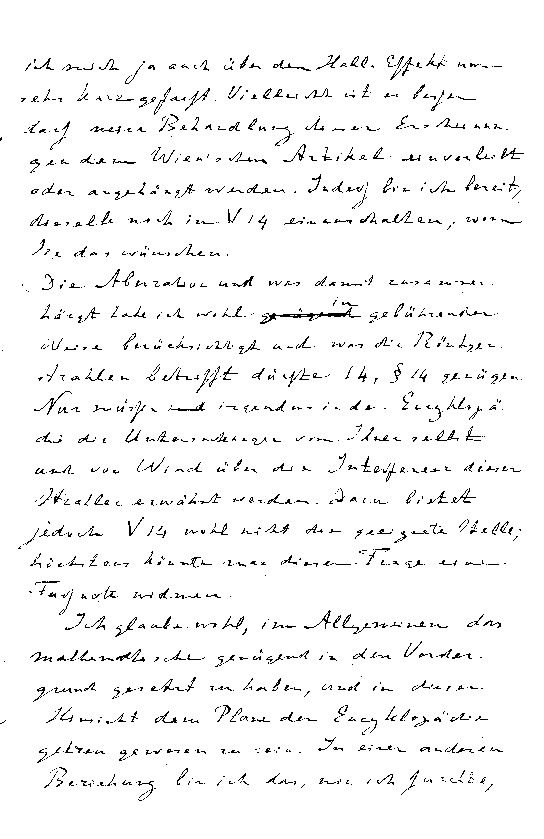 ich mich ja auch über den Hall-Effekt nur
sehr kurz gefasst. Vielleicht ist es besser
dass meine Behandlung dieser Erscheinun-
gen dem Wien'schen Artikel einverleibt
oder angehängt werden. Indess bin ich bereit,
dieselbe noch in V 14 einzuschalten, wenn
Sie das wünschen.
Die Aberration und was damit zusammen-
hängt habe ich wohl in gebührender
Weise berücksichtigt und was die Röntgen-
strahlen betrifft dürfte 14, § 14 genügen.
Nur müssen irgendwo in der Encyklopä-
die die Untersuchungen von Ihnen selbst
und von Wind über die Interferenz dieser
Strahlen erwähnt werden. Dazu bietet
jedoch V 14 wohl nicht die geeignete Stelle;
höchstens könnte man dieser Frage eine
Fussnote widmen.
Ich glaube wohl, im Allgemeinen das
mathematische genügend in den Vorder-
grund gesetzt zu haben, und in dieser
Hinsicht dem Plane der Encyklopädie
getreu gewesen zu sein. In einer anderen
Beziehung bin ich das, wie ich fürchte,